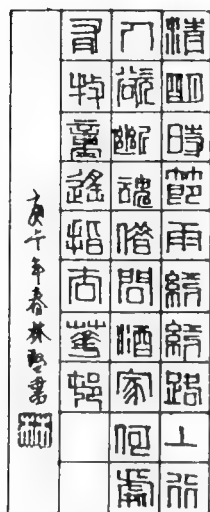 清明時節雨紛紛路上行
人欲斷魂借問酒家何處
有牧童遙指杏華邨
庚午年春林堅書